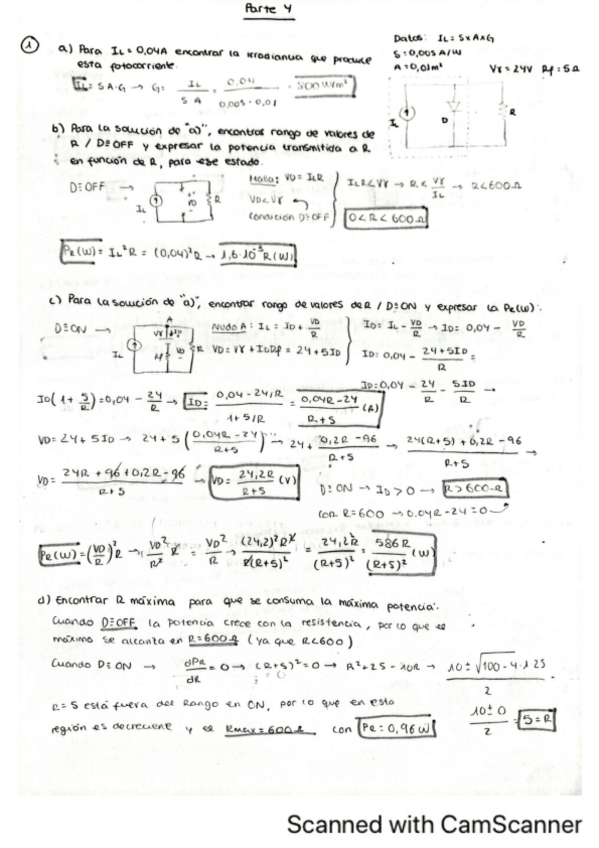 Parte 4
① a) Para IL = 0,04A encontrar la irradiancia que produce esta fotocorriente.
Datos: IL = S×A×G
S = 0,005 A/W
A = 0,01m²
Vγ = 24V Rf = 5Ω
IL = S A·G → G = IL / S A = 0,04 / 0,005·0,01 = 800 W/m²
IL D R
b) Para la solución de "a)", encontrar rango de valores de
R / D≡OFF y expresar la potencia transmitida a R
en función de R, para ese estado.
D≡OFF → IL VD R
Malla: VD = ILR
VD<Vγ
Condición D≡OFF
ILR<Vγ → R< Vγ/IL → R<600Ω
0<R<600Ω
PR(W) = IL²R = (0,04)²R → 1,6·10⁻³R(W)
c) Para la solución de "a)", encontrar rango de valores de R / D≡ON y expresar la PR(W).
D≡ON → IL A Vγ VD R
Nudo A: IL = ID + VD/R
VD = Vγ + IDRf = 24+5ID
ID = IL - VD/R → ID = 0,04 - VD/R
ID = 0,04 - 24+5ID / R =
ID = 0,04 - 24/R - 5ID/R →
ID(1+ 5/R) = 0,04 - 24/R → ID = 0,04-24/R / 1+5/R = 0,04R-24 / R+5 (A)
VD = 24+5ID → 24+5 (0,04R-24 / R+5) → 24+ 0,2R-96 / R+5 → 24(R+5)+0,2R-96 / R+5 →
VD = 24R+96+0,2R-96 / R+5 → VD = 24,2R / R+5 (V)
D≡ON → ID>0 → R>600Ω
con R=600 → 0,04R-24=0
PR(W) = (VD/R)²R → VD²/R² R = VD²/R → (24,2)²R² / R(R+5)² = 24,2R / (R+5)² = 586R / (R+5)² (W)
d) Encontrar R máxima para que se consuma la máxima potencia.
Cuando D≡OFF la potencia crece con la resistencia, por lo que el
máximo se alcanza en R=600Ω (ya que R<600)
Cuando D≡ON → dPR/dR = 0 → (R+5)² = 0 → R²+25-10R → 10±√100-4·1·25 / 2
R=5 está fuera del Rango en ON, por lo que en esta
región es decreciente y el Rmax=600Ω con PR = 0,96W
10±0 / 2 = 5=R
Scanned with CamScanner